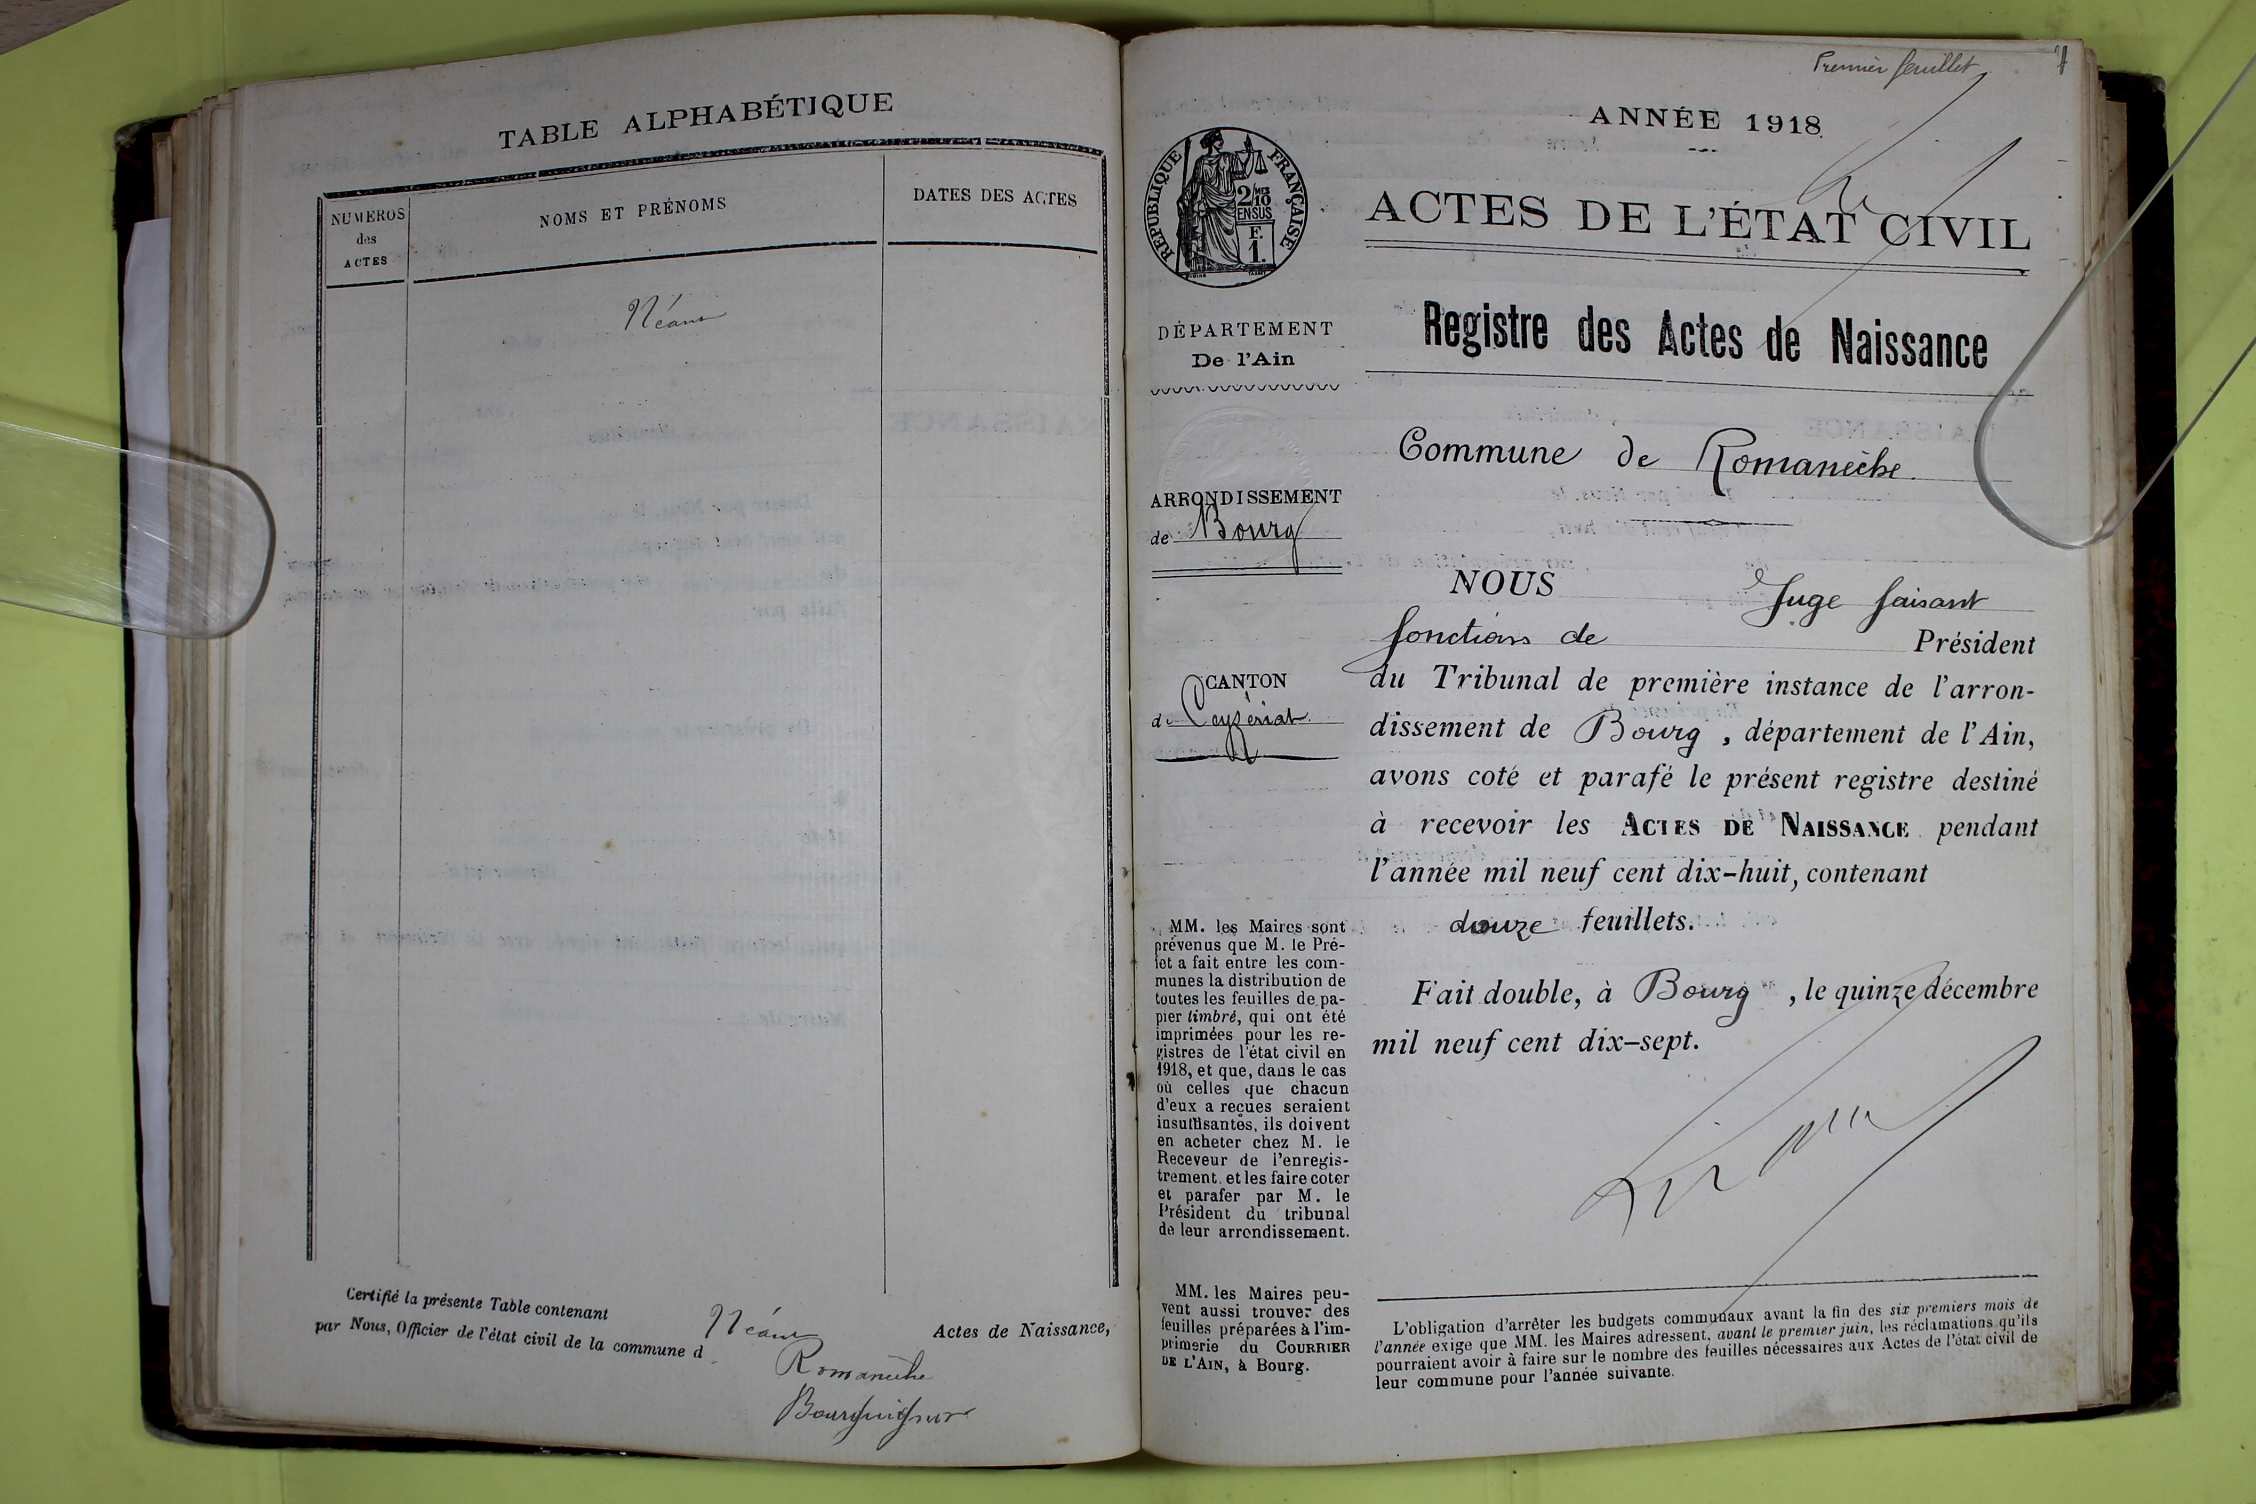 TABLE ALPHABÉTIQUE
NUMEROS
des
ACTES
NOMS ET PRÉNOMS
DATES DES ACTES
Néant
Certifié la présente Table contenant Néant Actes de Naissance,
par Nous, Officier de l'état civil de la commune d
Romanèche
Premier feuillet
ANNÉE 1918
RÉPUBLIQUE FRANÇAISE
2/10
EN SUS
F.
1.
ACTES DE L'ÉTAT CIVIL
DÉPARTEMENT
De l'Ain
Registre des Actes de Naissance
Commune de Romanèche.
ARRONDISSEMENT
de Bourg
CANTON
de Ceyzériat.
NOUS Juge faisant
fonctions de Président
du Tribunal de première instance de l'arron-
dissement de Bourg, département de l'Ain,
avons coté et parafé le présent registre destiné
à recevoir les ACTES DE NAISSANCE pendant
l'année mil neuf cent dix-huit, contenant
douze feuillets.
Fait double, à Bourg, le quinze décembre
mil neuf cent dix-sept.
MM. les Maires sont
prévenus que M. le Pré-
fet a fait entre les com-
munes la distribution de
toutes les feuilles de pa-
pier timbré, qui ont été
imprimées pour les re-
gistres de l'état civil en
1918, et que, dans le cas
où celles que chacun
d'eux a reçues seraient
insuffisantes, ils doivent
en acheter chez M. le
Receveur de l'enregis-
trement. et les faire coter
et parafer par M. le
Président du tribunal
de leur arrondissement.
MM. les Maires peu-
vent aussi trouver des
feuilles préparées à l'im-
primerie du COURRIER
DE L'AIN, à Bourg.
L'obligation d'arrêter les budgets communaux avant la fin des six premiers mois de
l'année exige que MM. les Maires adressent, avant le premier juin, les réclamations qu'ils
pourraient avoir à faire sur le nombre des feuilles nécessaires aux Actes de l'état civil de
leur commune pour l'année suivante.